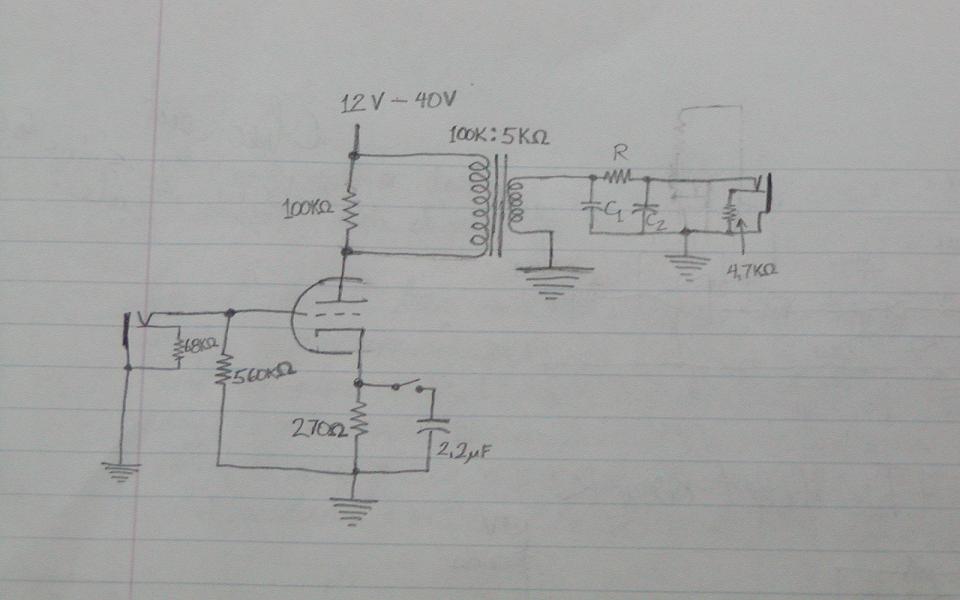 12V - 40V
100K:5KΩ
R
100KΩ
C1
C2
4,7KΩ
68KΩ
560KΩ
270Ω
2,2µF